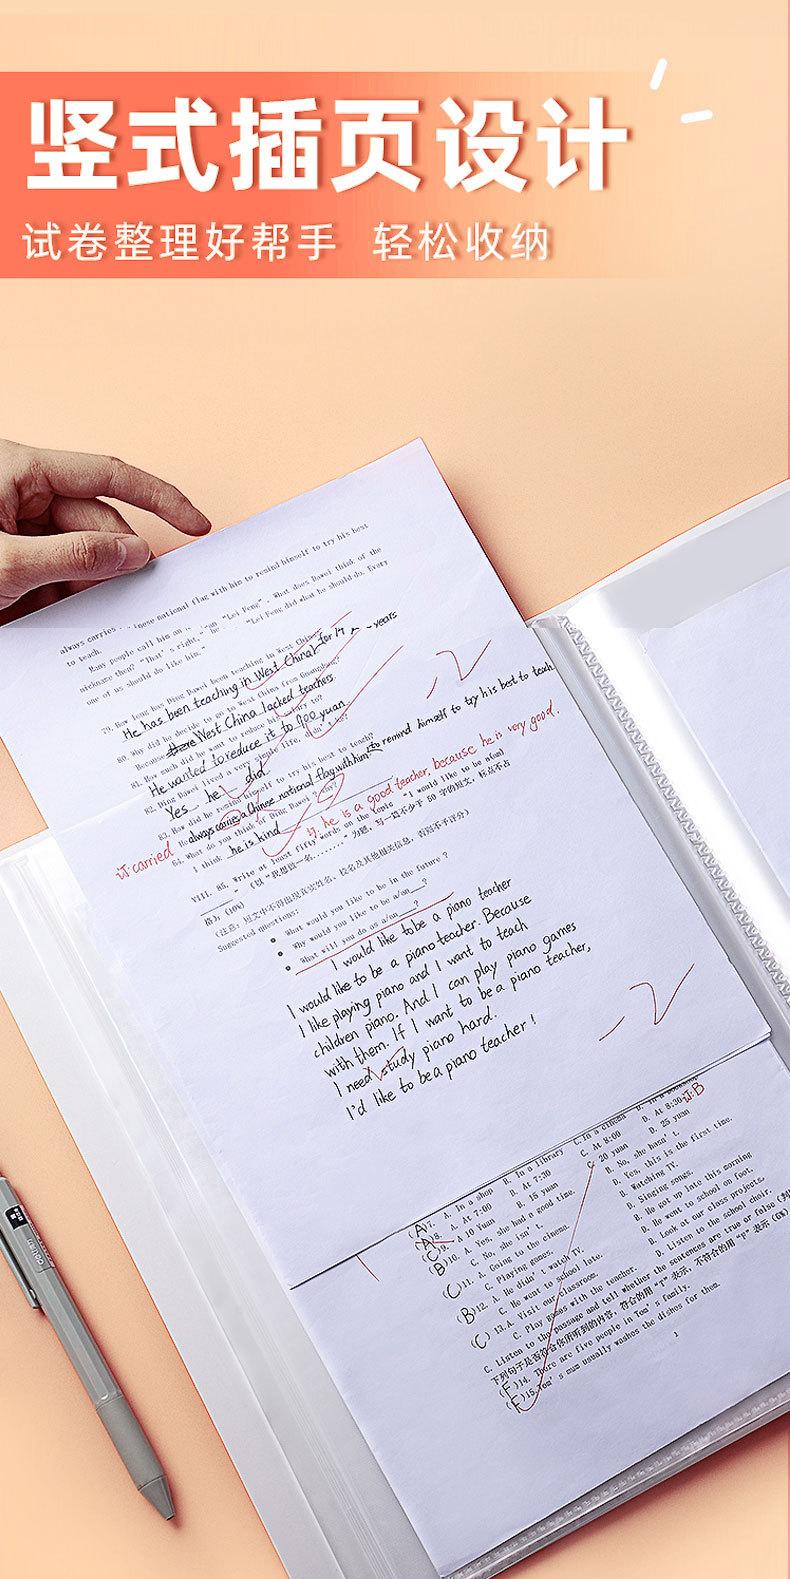 竖式插页设计
试卷整理好帮手 轻松收纳
always carries
nese national flag with him to remind himself to try his best
to teach.
Many people call him an
"Lei Feng". What does Dawei think of the
nickname then? "That's right,"
"Lei Feng did what he should do. Every
one of us should do like him."
79. How long has Ding Dawei been teaching in West China?
He has been teaching in West China for 14 years
80. Why did he decide to go to West China from Guangzhou?
Because there West China lacked teachers
81. How much did he want to reduce his salary to?
He wanted to reduce it to 700 yuan
82. Ding Dawei lived a very simple life, didn't he?
Yes he did.
83. How did he remind himself to try his best to teach?
He always carrie a Chinese national flag with him to remind himself to try his best to teach
订:carried
84. What do you think of Ding Dawei? Why?
I think he is kind
订. he is a good teacher, because he is very good.
VIII. 85. Write at least fifty words on the topic "I would like to be a(an)
." (以"我想做一名........"为题, 写一篇不少于 50 字的短文, 标点不占
格). (10%)
(注意: 短文中不得出现真实姓名、校名及其他相关信息, 否则不予评分)
Suggested questions:
● What would you like to be in the future ?
● Why would you like to be a/an___?
● What will you do as a/an___?
I would like to be a piano teacher
I would like to be a piano teacher. Because
I like playing piano and I want to teach
children piano. And I can play piano games
with them. If I want to be a piano teacher,
I need study piano hard.
I'd like to be a piano teacher!
-2
-2
(A)7. A. In a shop B. In a library C. In a cinema D. In a bookshop
(A)8. A. At 7:00 B. At 7:30 C. At 8:00 D. At 8:30 订:B
(C)9. A 10 Yuan B. 15 yuan C. 20 yuan D. 25 yuan
(B)10. A. Yes, she had a good time. B. No, she hasn't.
C. No, she isn't. D. Yes, this is the first time.
(C)11. A. Going to the cinema. B. Watching TV.
C. Playing games. D. Singing songs.
(B)12. A. He didn't watch TV. B. He got up late this morning
C. He went to school late. D. He went to school on foot.
(C)13. A. Visit our classroom. B. Look at our class projects.
C. Play games with the teacher. D. Listen to the school choir.
C. Listen to the passage and tell whether the sentences are true or false
下列句子是否符合你所听到的内容, 符合的用"T"表示, 不符合的用"F"表示
(F)14. There are five people in Tom's family.
(F)15. Tom's mum usually washes the dishes for them.
1
deli